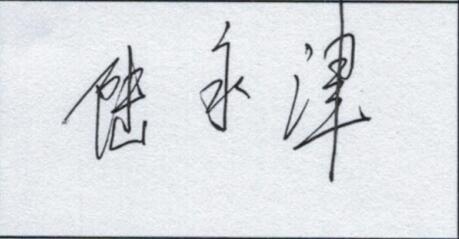 陆永津